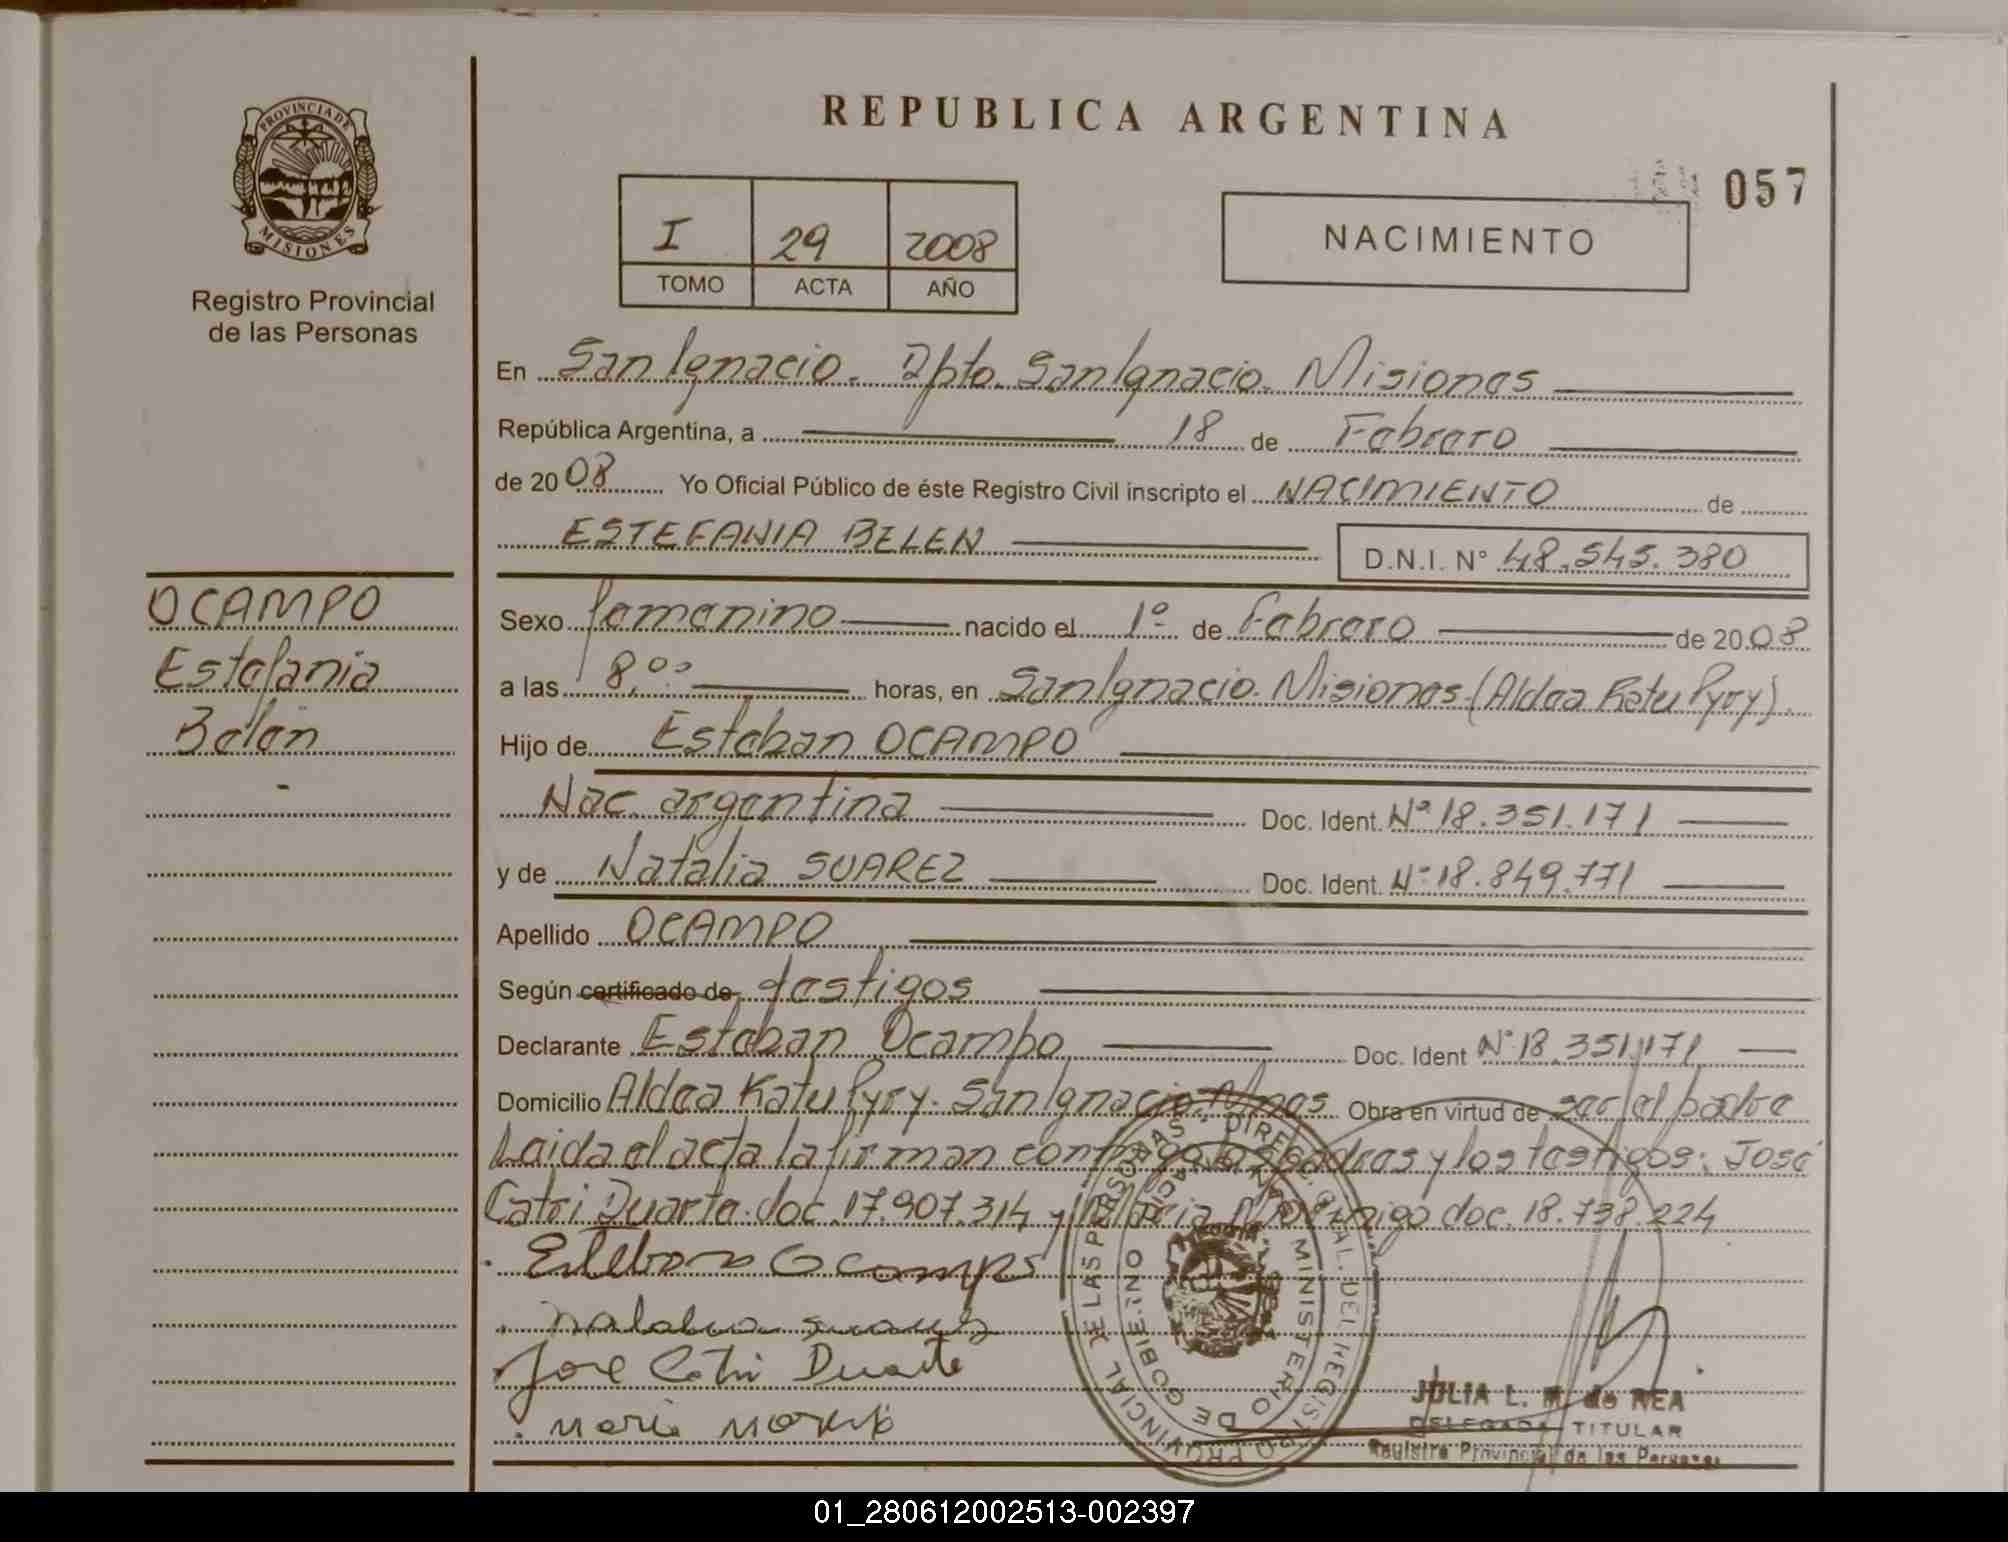 PROVINCIA DE
MISIONES
Registro Provincial
de las Personas
OCAMPO
Estefania
Belen
-
REPUBLICA ARGENTINA
057
I 29 2008
TOMO ACTA AÑO
NACIMIENTO
En San Ignacio. Dpto. San Ignacio. Misiones
República Argentina, a 18 de Febrero
de 2008 Yo Oficial Público de éste Registro Civil inscripto el NACIMIENTO de
ESTEFANIA BELEN D.N.I. N° 48.545.380
Sexo femenino nacido el 1º de Febrero de 2008
a las 8,00 horas, en San Ignacio. Misiones (Aldea Katu Pyry).
Hijo de Esteban OCAMPO
Nac. argentina Doc. Ident. Nº 18.351.171
y de Natalia SUAREZ Doc. Ident. Nº 18.849.771
Apellido OCAMPO
Según certificado de testigos
Declarante Esteban Ocampo Doc. Ident Nº 18.351.171
Domicilio Aldea Katu Pyry. San Ignacio. Mnes Obra en virtud de ser el padre
Leida el acta la firman conmigo los padres y los testigos: José
Catri Duarte. doc. 17.907.314 y doc. 18.738.224
Esteban Ocampo
Jose Catri Duarte
Maria
DIREC. GRAL. DEL REGISTRO PROVINCIAL DE LAS PERSONAS
MINISTERIO DE GOBIERNO
JULIA L. M. de REA
DELEGADA TITULAR
Registro Provincial de las Personas
01_280612002513-002397